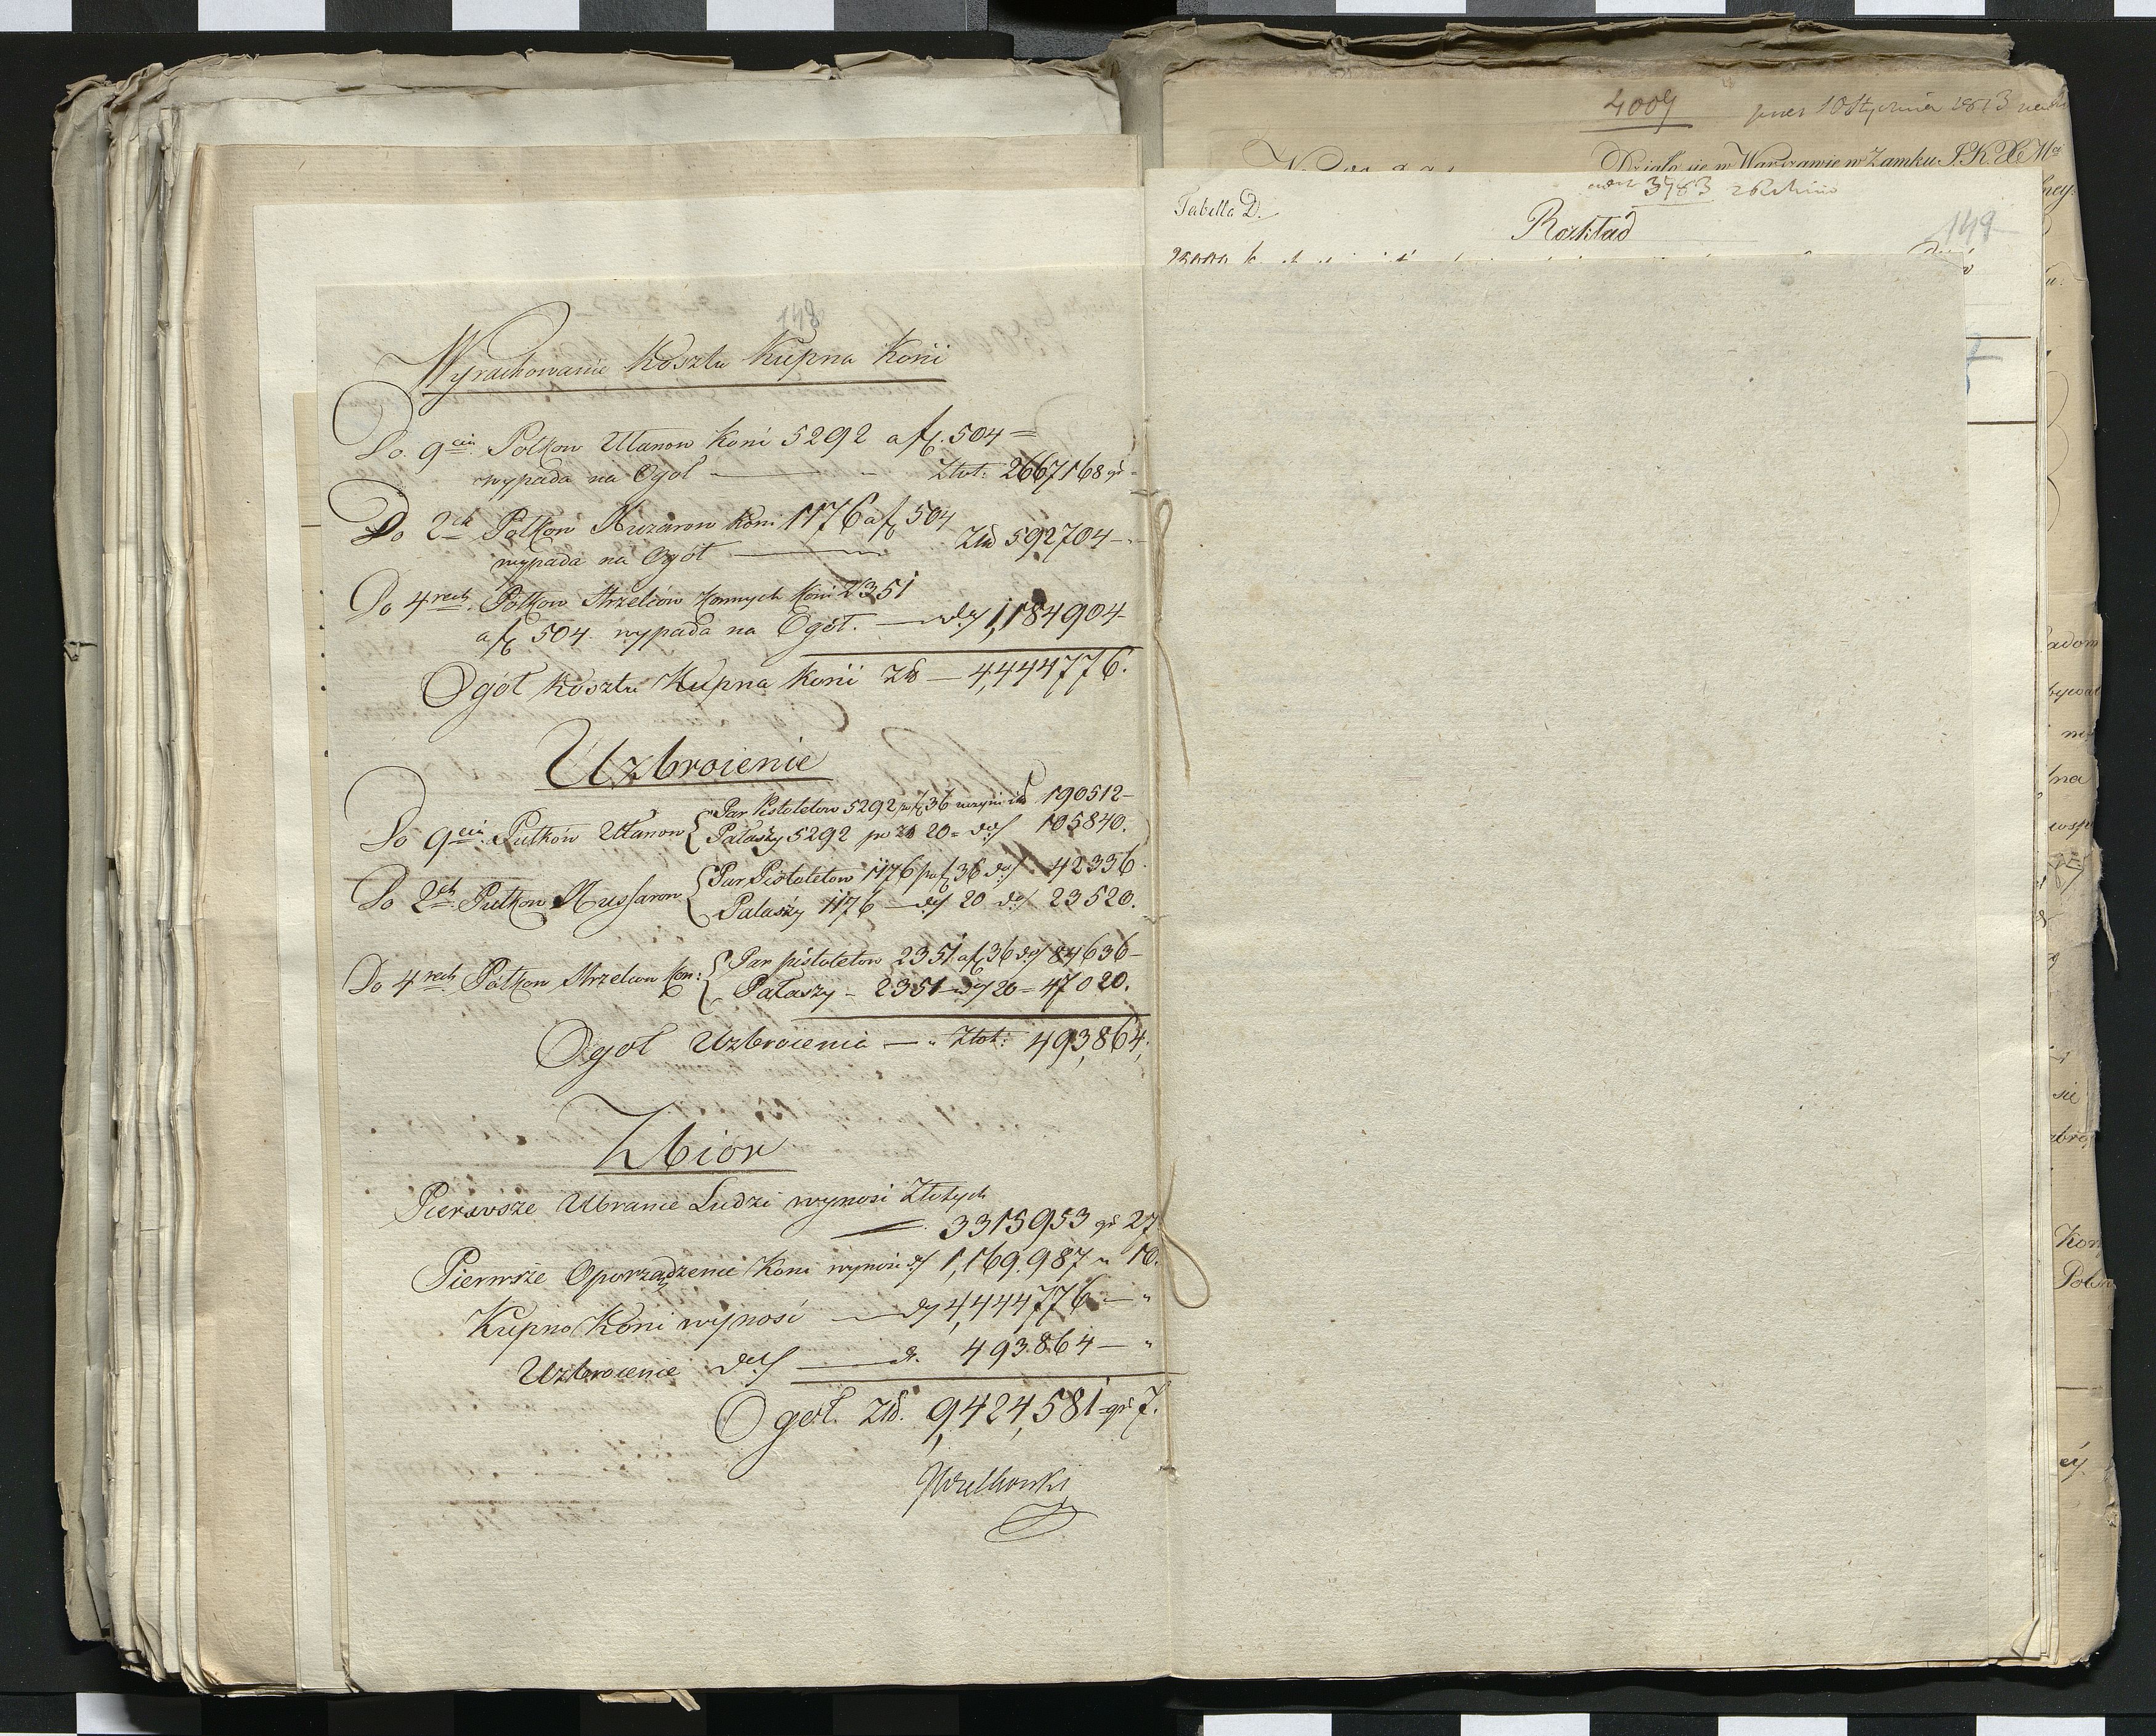 148
Wyrachowanie Kosztu Kupna Koni
Do 9ciu Polkow Ulanow Koni 5292 a f. 504 =
wypada na Ogoł — Złot: 2667168 gr -
Do 2ch Polkow Huzarow Koni 1176 a f 504
wypada na Ogół — Złd 592704 -
Do 4rech Polkow Strzelcow konnych Koni 2351
a f 504. wypada na Ogół. — d:y 1,184904 -
Ogół Kosztu Kupna Koni Zł — 4,444776.
Uzbroienie
Do 9ciu Pułków Ułanow { Par Pistoletow 5292 po f 36 czyni zł 190512 -
Pałaszy 5292 po zł 20 = d:y 105840.
Do 2ch Pułkow Hussarow { Par Pistoletow 1176 po f 36 d:y 42336.
Pałaszy 1176 — d:y 20 d:y 23520.
Do 4rech Pólkow Strzelcow kon: { Par pistoletow 2351 a f 36 d:y 84636 -
Pałaszy - 2351 — d:y 20 = 47020.
Ogoł Uzbroienia — „ Złot: 493,864.
Zbior
Pierwsze Ubranie Ludzi wynosi Złotych
— 3315953 gr 27
Pierwsze Oporządzenie Koni wynosi d:y 1,169.987 „ 10.
Kupno Koni wynosi — d:y 4,444,776 — „
Uzbroienie d:y — d. 493.864 — „
Ogoł. Złd. 9,424,581 gr 7.
4009 10 Stycznia 1813
Działo się w Warszawie w Zamku J. K. X. Mci
3783
Tabella D.
Rozkład
149